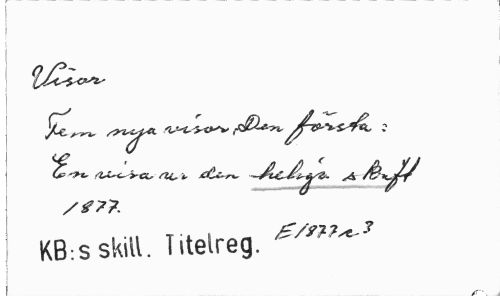 Visor
Fem nya visor, Den första:
En visa ur den heliga skrift
1877.
KB:s skill. Titelreg. E1877 r3